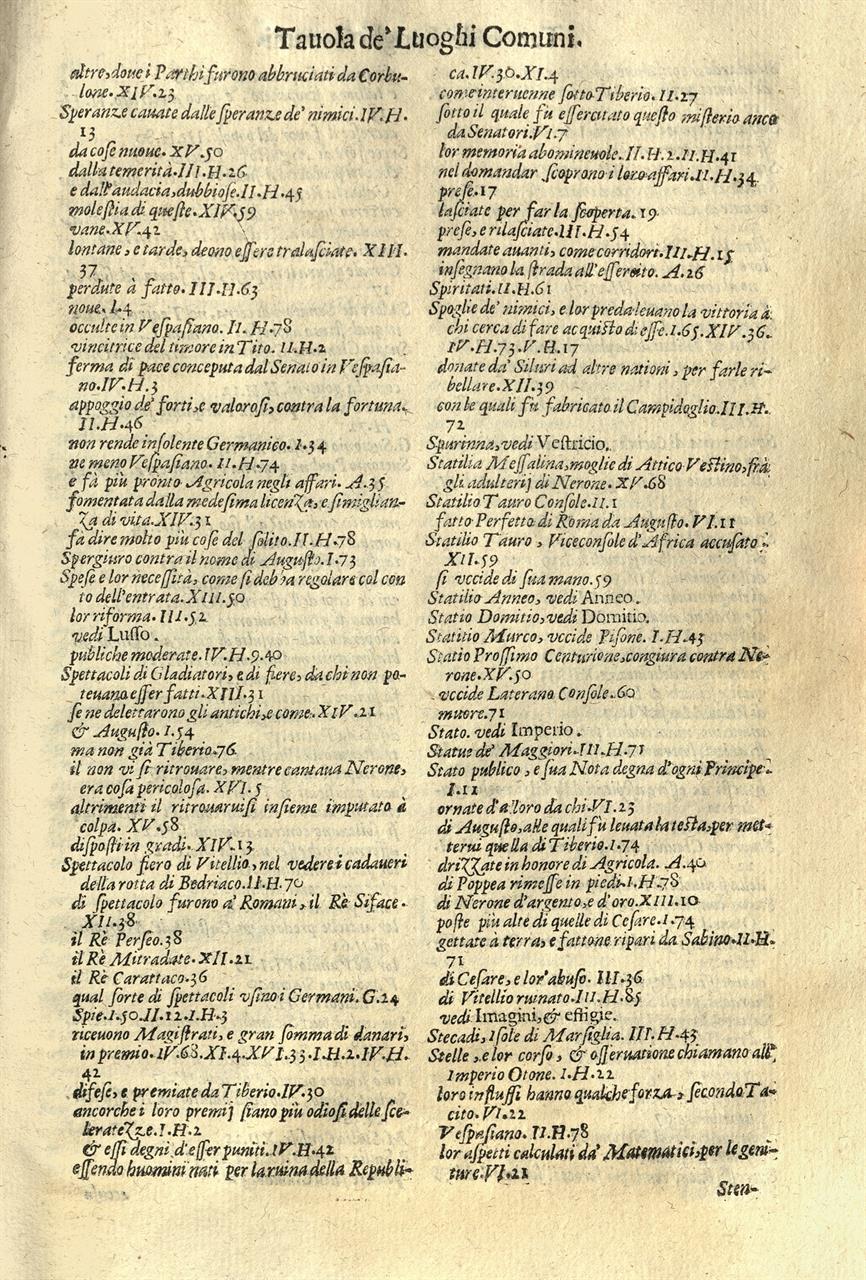 Tauola de' Luoghi Comuni.
altre, doue i Parthi furono abbruciati da Corbu-
lone. XIV. 23
Speranze cauate dalle ſperanze de' nimici. IV. H.
13
da coſe nuoue. XV. 50
dalla temerità. III. H. 26
e dall'audacia, dubbioſe. II. H. 45
moleſtia di queſte. XIV. 59
vane. XV. 42
lontane, e tarde, deono eſſere tralaſciate. XIII.
37
perdute à fatto. III. H. 63
noue. I. 4
occulte in Veſpaſiano. II. H. 78
vincitrice del timore in Tito. II. H. 2
ferma di pace conceputa dal Senato in Veſpaſia-
no. IV. H. 3
appoggio de' forti, e valoroſi, contra la fortuna.
II. H. 46
non rende inſolente Germanico. I. 34
ne meno Veſpaſiano. II. H. 74
e fà più pronto Agricola negli affari. A. 35
fomentata dalla medeſima licenza, e ſimiglian-
za di vita. XIV. 31
fa dire molto più coſe del ſolito. II. H. 78
Spergiuro contra il nome di Auguſto. I. 73
Speſe e lor neceſſità, come ſi debba regolare col con
to dell'entrata. XIII. 50
lor riforma. III. 52
vedi Luſſo.
publiche moderate. IV. H. 9. 40
Spettacoli di Gladiatori, e di fiere, da chi non po-
teuano eſſer fatti. XIII. 31
ſe ne delettarono gli antichi, e come. XIV. 21
& Auguſto. I. 54
ma non già Tiberio. 76
il non vi ſi ritrouare, mentre cantaua Nerone,
era coſa pericoloſa. XVI. 5
altrimenti il ritrouaruiſi inſieme imputato à
colpa. XV. 58
diſpoſti in gradi. XIV. 13
Spettacolo fiero di Vitellio, nel vedere i cadaueri
della rotta di Bedriaco. II. H. 70
di ſpettacolo furono a' Romani, il Rè Siface.
XII. 38
il Rè Perſeo. 38
il Rè Mitradate. XII. 21
il Rè Carattaco. 36
qual ſorte di ſpettacoli vſino i Germani. G. 24
Spie. I. 50. II. 12. I. H. 3
riceuono Magiſtrati, e gran ſomma di danari,
in premio. IV. 68. XI. 4. XVI. 33. I. H. 2. IV. H.
42
difeſe, e premiate da Tiberio. IV. 30
ancorche i loro premij ſiano più odioſi delle ſce-
leratezze. I. H. 2
& eſſi degni d'eſſer puniti. IV. H. 42
eſſendo huomini nati per la ruina della Republi-
ca. IV. 30. XI. 4
come interuenne ſotto Tiberio. II. 27
ſotto il quale fù eſſercitato queſto miſterio anco
da Senatori. VI. 7
lor memoria abomineuole. II. H. 2. II. H. 41
nel domandar ſcoprono i loro affari. II. H. 34
preſe. 17
laſciate per far la ſcoperta. 19
preſe, e rilaſciate. III. H. 54
mandate auanti, come corridori. III. H. 15
inſegnano la ſtrada all'eſſercito. A. 26
Spiritati. II. H. 61
Spoglie de' nimici, e lor preda leuano la vittoria à
chi cerca di fare acquiſto di eſſe. I. 65. XIV. 36.
IV. H. 73. V. H. 17
donate da' Siluri ad altre nationi, per farle ri-
bellare. XII. 39
con le quali fù fabricato il Campidoglio. III. H.
72
Spurinna, vedi Veſtricio.
Statilia Meſſalina, moglie di Attico Veſtino, frà
gli adulterij di Nerone. XV. 68
Statilio Tauro Conſole. II. 1
fatto Perfetto di Roma da Auguſto. VI. 11
Statilio Tauro, Viceconſole d'Africa accuſato.
XII. 59
ſi vccide di ſua mano. 59
Statilio Anneo, vedi Anneo.
Statio Domitio, vedi Domitio.
Statitio Murco, vccide Piſone. I. H. 43
Statio Proſſimo Centurione, congiura contra Ne-
rone. XV. 50
vccide Laterano Conſole. 60
muore. 71
Stato. vedi Imperio.
Statue de' Maggiori. III. H. 71
Stato publico, e ſua Nota degna d'ogni Principe.
I. 11
ornate d'alloro da chi. VI. 23
di Auguſto, alle quali fù leuata la teſta, per met-
terui quella di Tiberio. I. 74
drizzate in honore di Agricola. A. 40
di Poppea rimeſſe in piedi. I. H. 78
di Nerone d'argento, e d'oro. XIII. 10
poſte più alte di quelle di Ceſare. I. 74
gettate à terra, e fattone ripari da Sabino. II. H.
71
di Ceſare, e lor' abuſo. III. 36
di Vitellio ruinato. III. H. 85
vedi Imagini, & effigie.
Stecadi, Iſole di Marſiglia. III. H. 43
Stelle, e lor corſo, & oſſeruatione chiamano all'
Imperio Otone. I. H. 22
loro influſſi hanno qualche forza, ſecondo Ta-
cito. VI. 22
Veſpaſiano. II. H. 78
lor aſpetti calculati da' Matematici, per le geni-
ture. VI. 21
Sten-